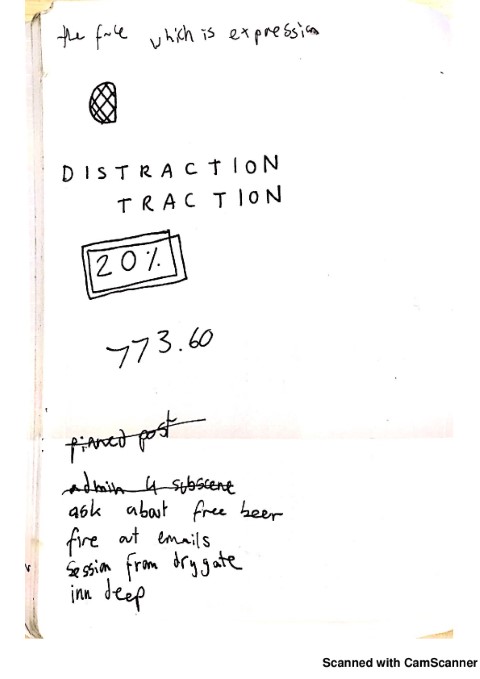 the face which is expression
DISTRACTION
TRACTION
20%
773.60
pinned post
admin 4 subscene
ask about free beer
fire at emails
session from drygate
inn deep
Scanned with CamScanner